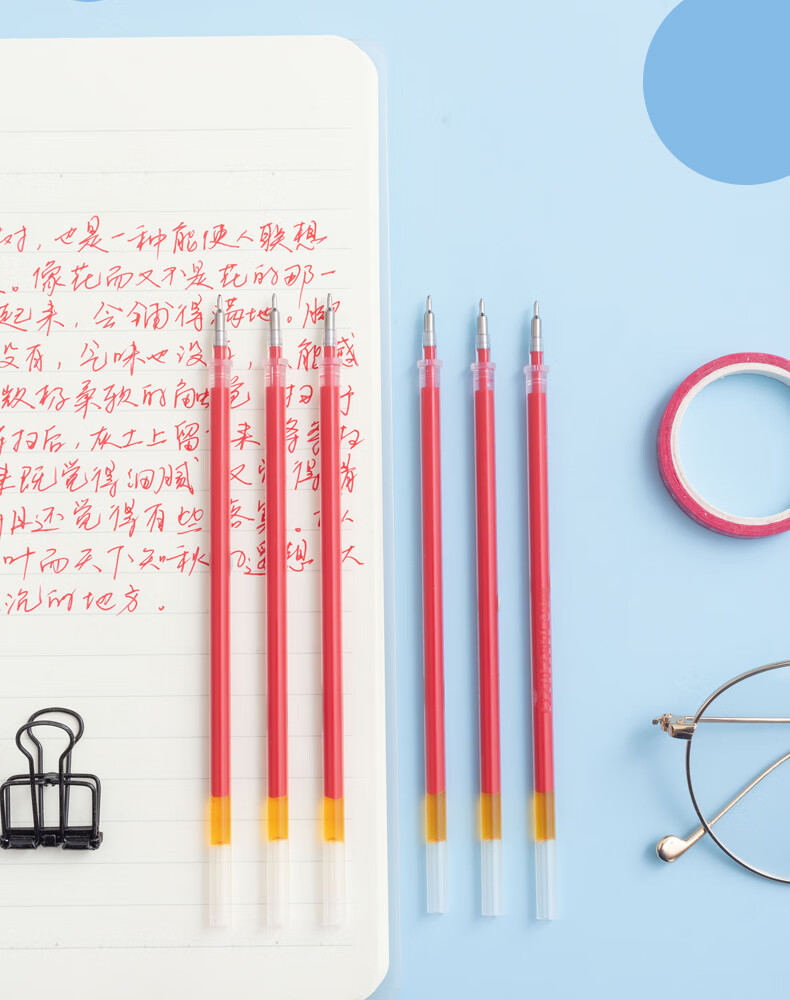 ，也是一种能使人联想
。像花而又不是花的那一
起来，会铺得满地。脚
没有，气味也没，能感
极柔软的触觉 扫
扫后，灰土上留来
来既觉得细腻 又得
且还觉得有些
叶而天下知秋的遥想 大
沉的地方。